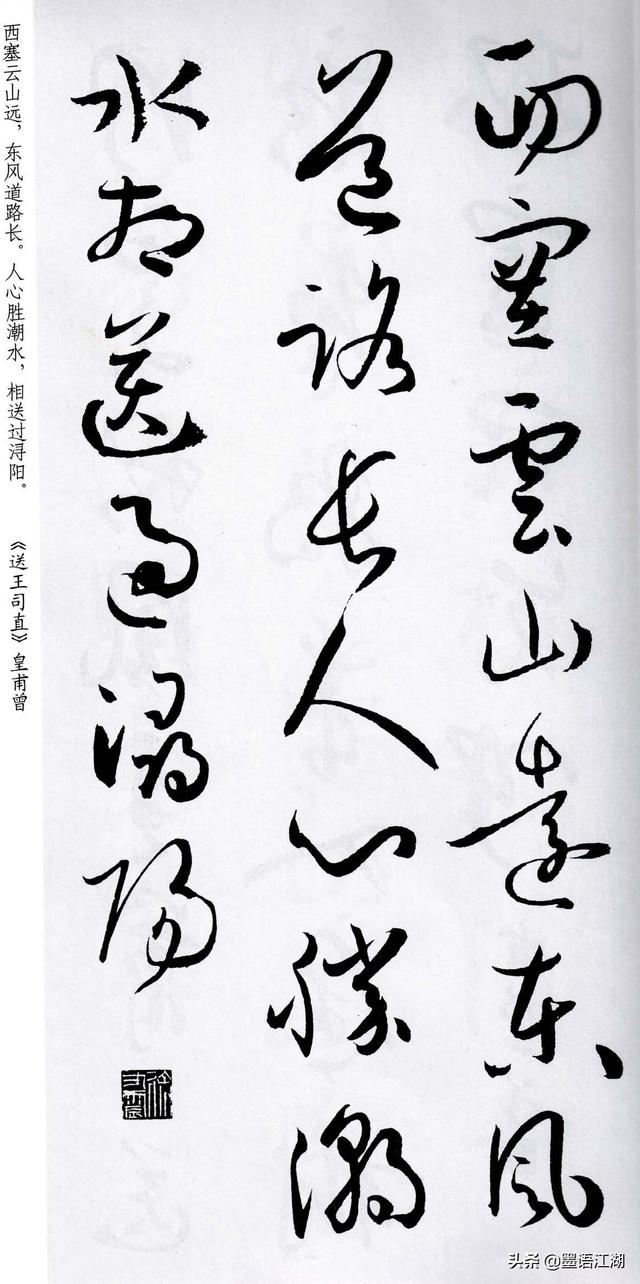 西塞雲山遠東風
道路長人心勝潮
水相送過潯陽
西塞云山远，东风道路长。人心胜潮水，相送过浔阳。
《送王司直》皇甫曾
头条 @墨语江湖